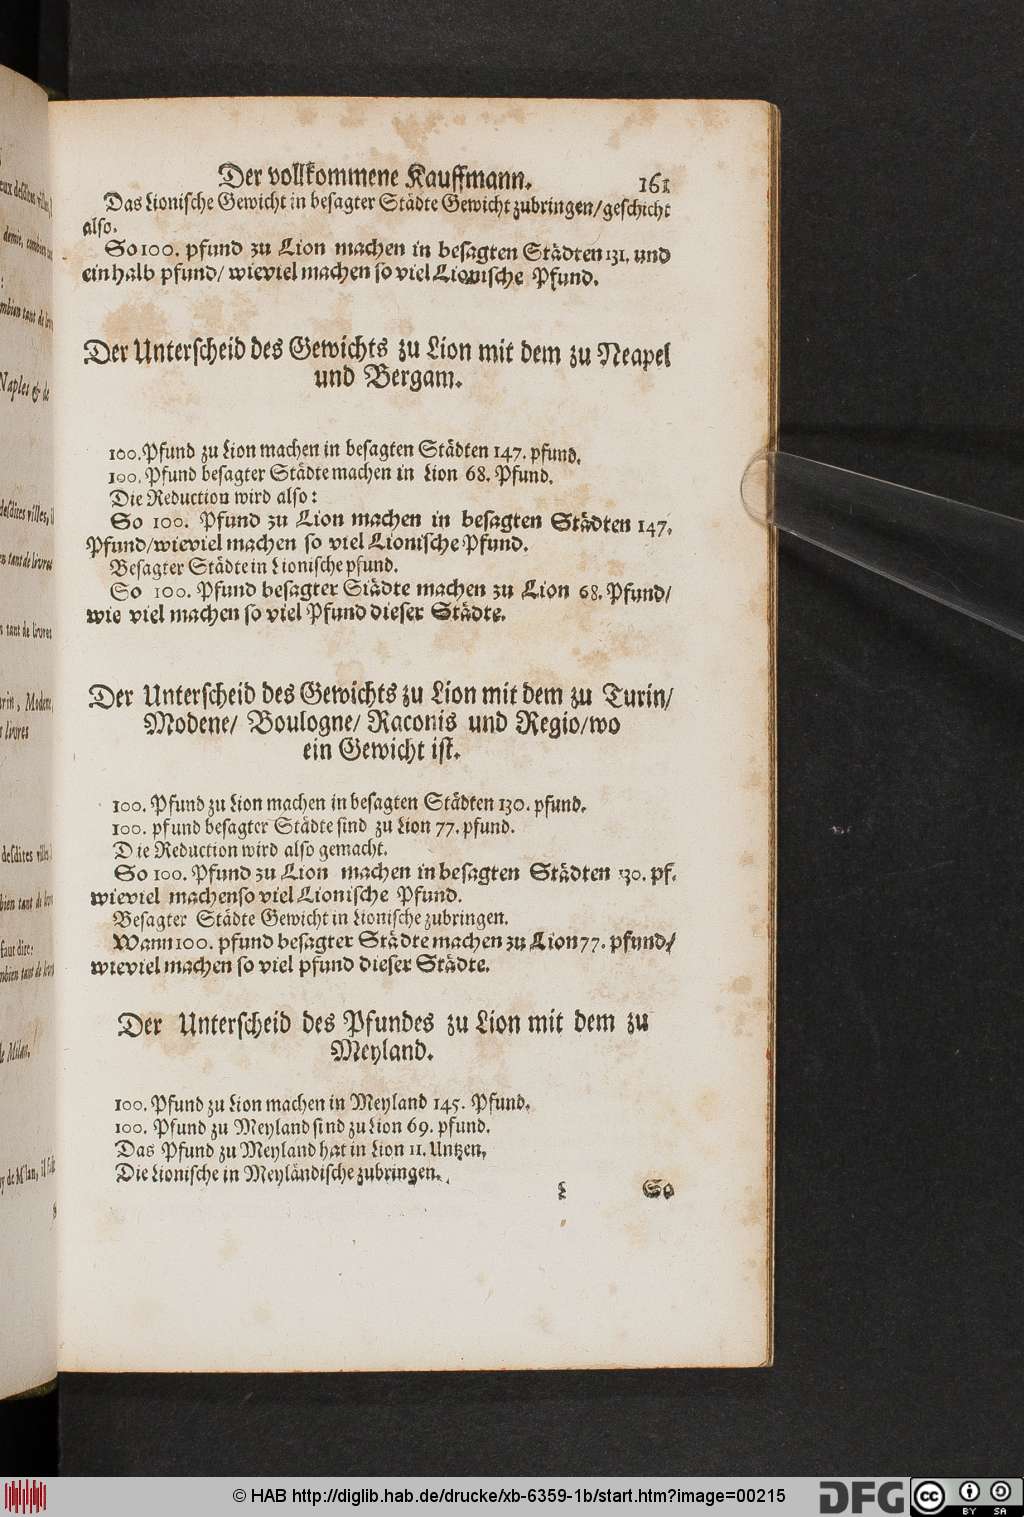 Der vollkommene Kauffmann. 161
Das Lionische Gewicht in besagter Städte Gewicht zubringen/geschicht
also.
So 100. pfund zu Lion machen in besagten Städten 131. und
ein halb pfund/ wieviel machen so viel Lionische Pfund.
Der Unterscheid des Gewichts zu Lion mit dem zu Neapel
und Bergam.
100. Pfund zu Lion machen in besagten Städten 147. pfund.
100. Pfund besagter Städte machen in Lion 68. Pfund.
Die Reduction wird also:
So 100. Pfund zu Lion machen in besagten Städten 147.
Pfund/wieviel machen so viel Lionische Pfund.
Besagter Städte in Lionische pfund.
So 100. Pfund besagter Städte machen zu Lion 68. Pfund/
wie viel machen so viel Pfund dieser Städte.
Der Unterscheid des Gewichts zu Lion mit dem zu Turin/
Modene/ Boulogne/ Raconis und Regio/wo
ein Gewicht ist.
100. Pfund zu Lion machen in besagten Städten 130. pfund.
100. pfund besagter Städte sind zu Lion 77. pfund.
Die Reduction wird also gemacht.
So 100. Pfund zu Lion machen in besagten Städten 130. pf.
wieviel machen so viel Lionische Pfund.
Besagter Städte Gewicht in Lionische zubringen.
Wann 100. pfund besagter Städte machen zu Lion 77. pfund/
wieviel machen so viel pfund dieser Städte.
Der Unterscheid des Pfundes zu Lion mit dem zu
Meyland.
100. Pfund zu Lion machen in Meyland 145. Pfund.
100. Pfund zu Meyland sind zu Lion 69. pfund.
Das Pfund zu Meyland hat in Lion 11. Untzen.
Die Lionische in Meyländische zubringen.
L So
© HAB http://diglib.hab.de/drucke/xb-6359-1b/start.htm?image=00215
DFG
cc BY SA